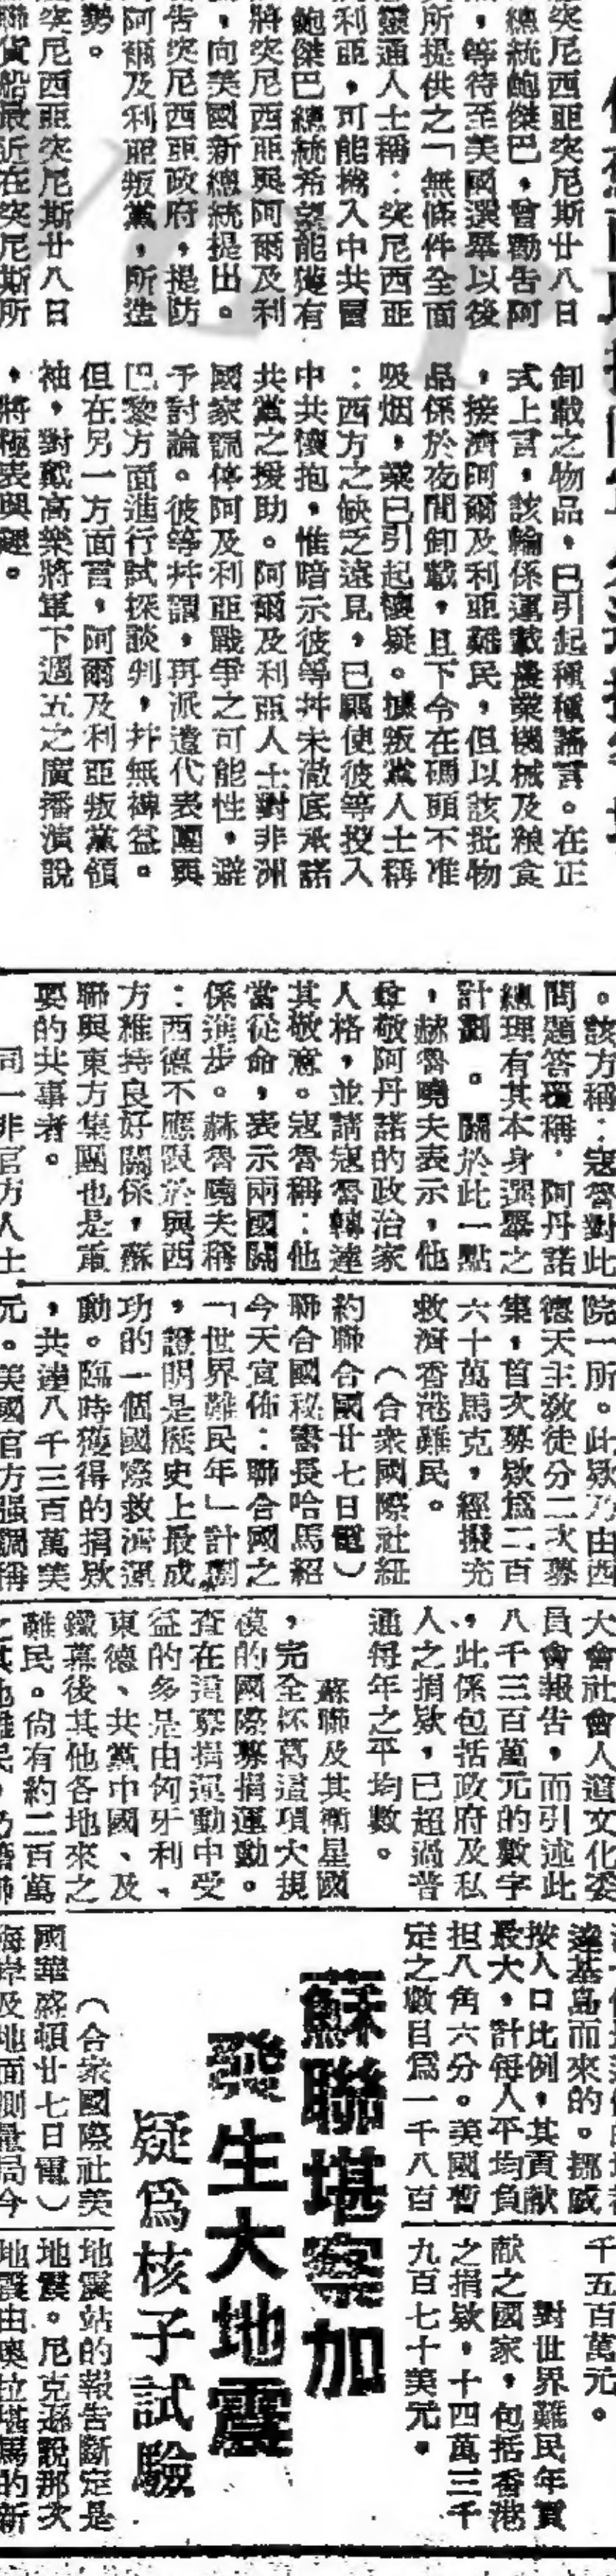 突尼西亞突尼斯廿八日
總統鮑傑巴，曾勸告阿
，等待至美國選舉以後
所提供之「無條件全面
靈通人士稱：突尼西亞
利亞，可能捲入中共冒
鮑傑巴總統希望能獲有
將突尼西亞與阿爾及利
，向美國新總統提出。
告突尼西亞政府，提防
阿爾及利亞叛黨，所造
勢。
突尼西亞突尼斯廿八日
聯貨船最近在突尼斯所
卸載之物品，已引起種種謠言。在正
式上言，該輪係運載農業機械及粮食
，接濟阿爾及利亞難民，但以該批物
品係於夜間卸載，且下令在碼頭不准
吸烟，業已引起懷疑。據叛黨人士稱
：西方之缺乏遠見，已驅使彼等投入
中共懷抱，惟暗示彼等并未澈底承諾
共黨之援助。阿爾及利亞人士對非洲
國家調停阿及利亞戰爭之可能性，避
予討論。彼等并謂，再派遣代表團與
巴黎方面進行試探談判，并無裨益。
但在另一方面言，阿爾及利亞叛黨領
袖，對戴高樂將軍下週五之廣播演說
，將極表興趣。
。該方稱：寇魯對此
問題答覆稱，阿丹諾
總理有其本身選舉之
計劃。關於此一點
，赫魯曉夫表示，他
尊敬阿丹諾的政治家
人格，並請寇魯轉達
其敬意。寇魯稱：他
當從命，表示兩國關
係進步。赫魯曉夫稱
：西德不應限於與西
方維持良好關係，蘇
聯與東方集團也是重
要的共事者。
同一非官方人士
院一所。此欵乃由西
德天主敎徒分二次募
集，首次募欵爲二百
六十萬馬克，經撥充
救濟香港難民。
（合衆國際社紐
約聯合國廿七日電）
聯合國秘書長哈馬紹
今天宣佈：聯合國之
「世界難民年」計劃
，證明是歷史上最成
功的一個國際救濟運
動。臨時獲得的捐欵
，共達八千三百萬美
元。美國官方强調稱
大會社會人道文化委
員會報告，而引述此
八千三百萬元的數字
，此係包括政府及私
人之捐欵，已超過普
通每年之平均數。
蘇聯及其衛星國
，完全杯葛這項大規
模的國際募捐運動。
查在這募捐運動中受
益的多是由匈牙利、
東德、共黨中國、及
鐵幕後其他各地來之
難民。尙有約二百萬
達基島而來的。挪威
按人口比例，其貢献
最大，計每人平均負
担八角六分。美國暫
定之數目爲一千八百
千五百萬元。
對世界難民年貢
献之國家，包括香港
之捐欵，十四萬三千
九百七十美元。
蘇聯堪察加
發生大地震
疑爲核子試驗
（合衆國際社美
國華盛頓廿七日電）
海岸及地面測量局今
地震站的報告斷定是
地震。尼克遜說那次
地震由奧拉堪馬的新